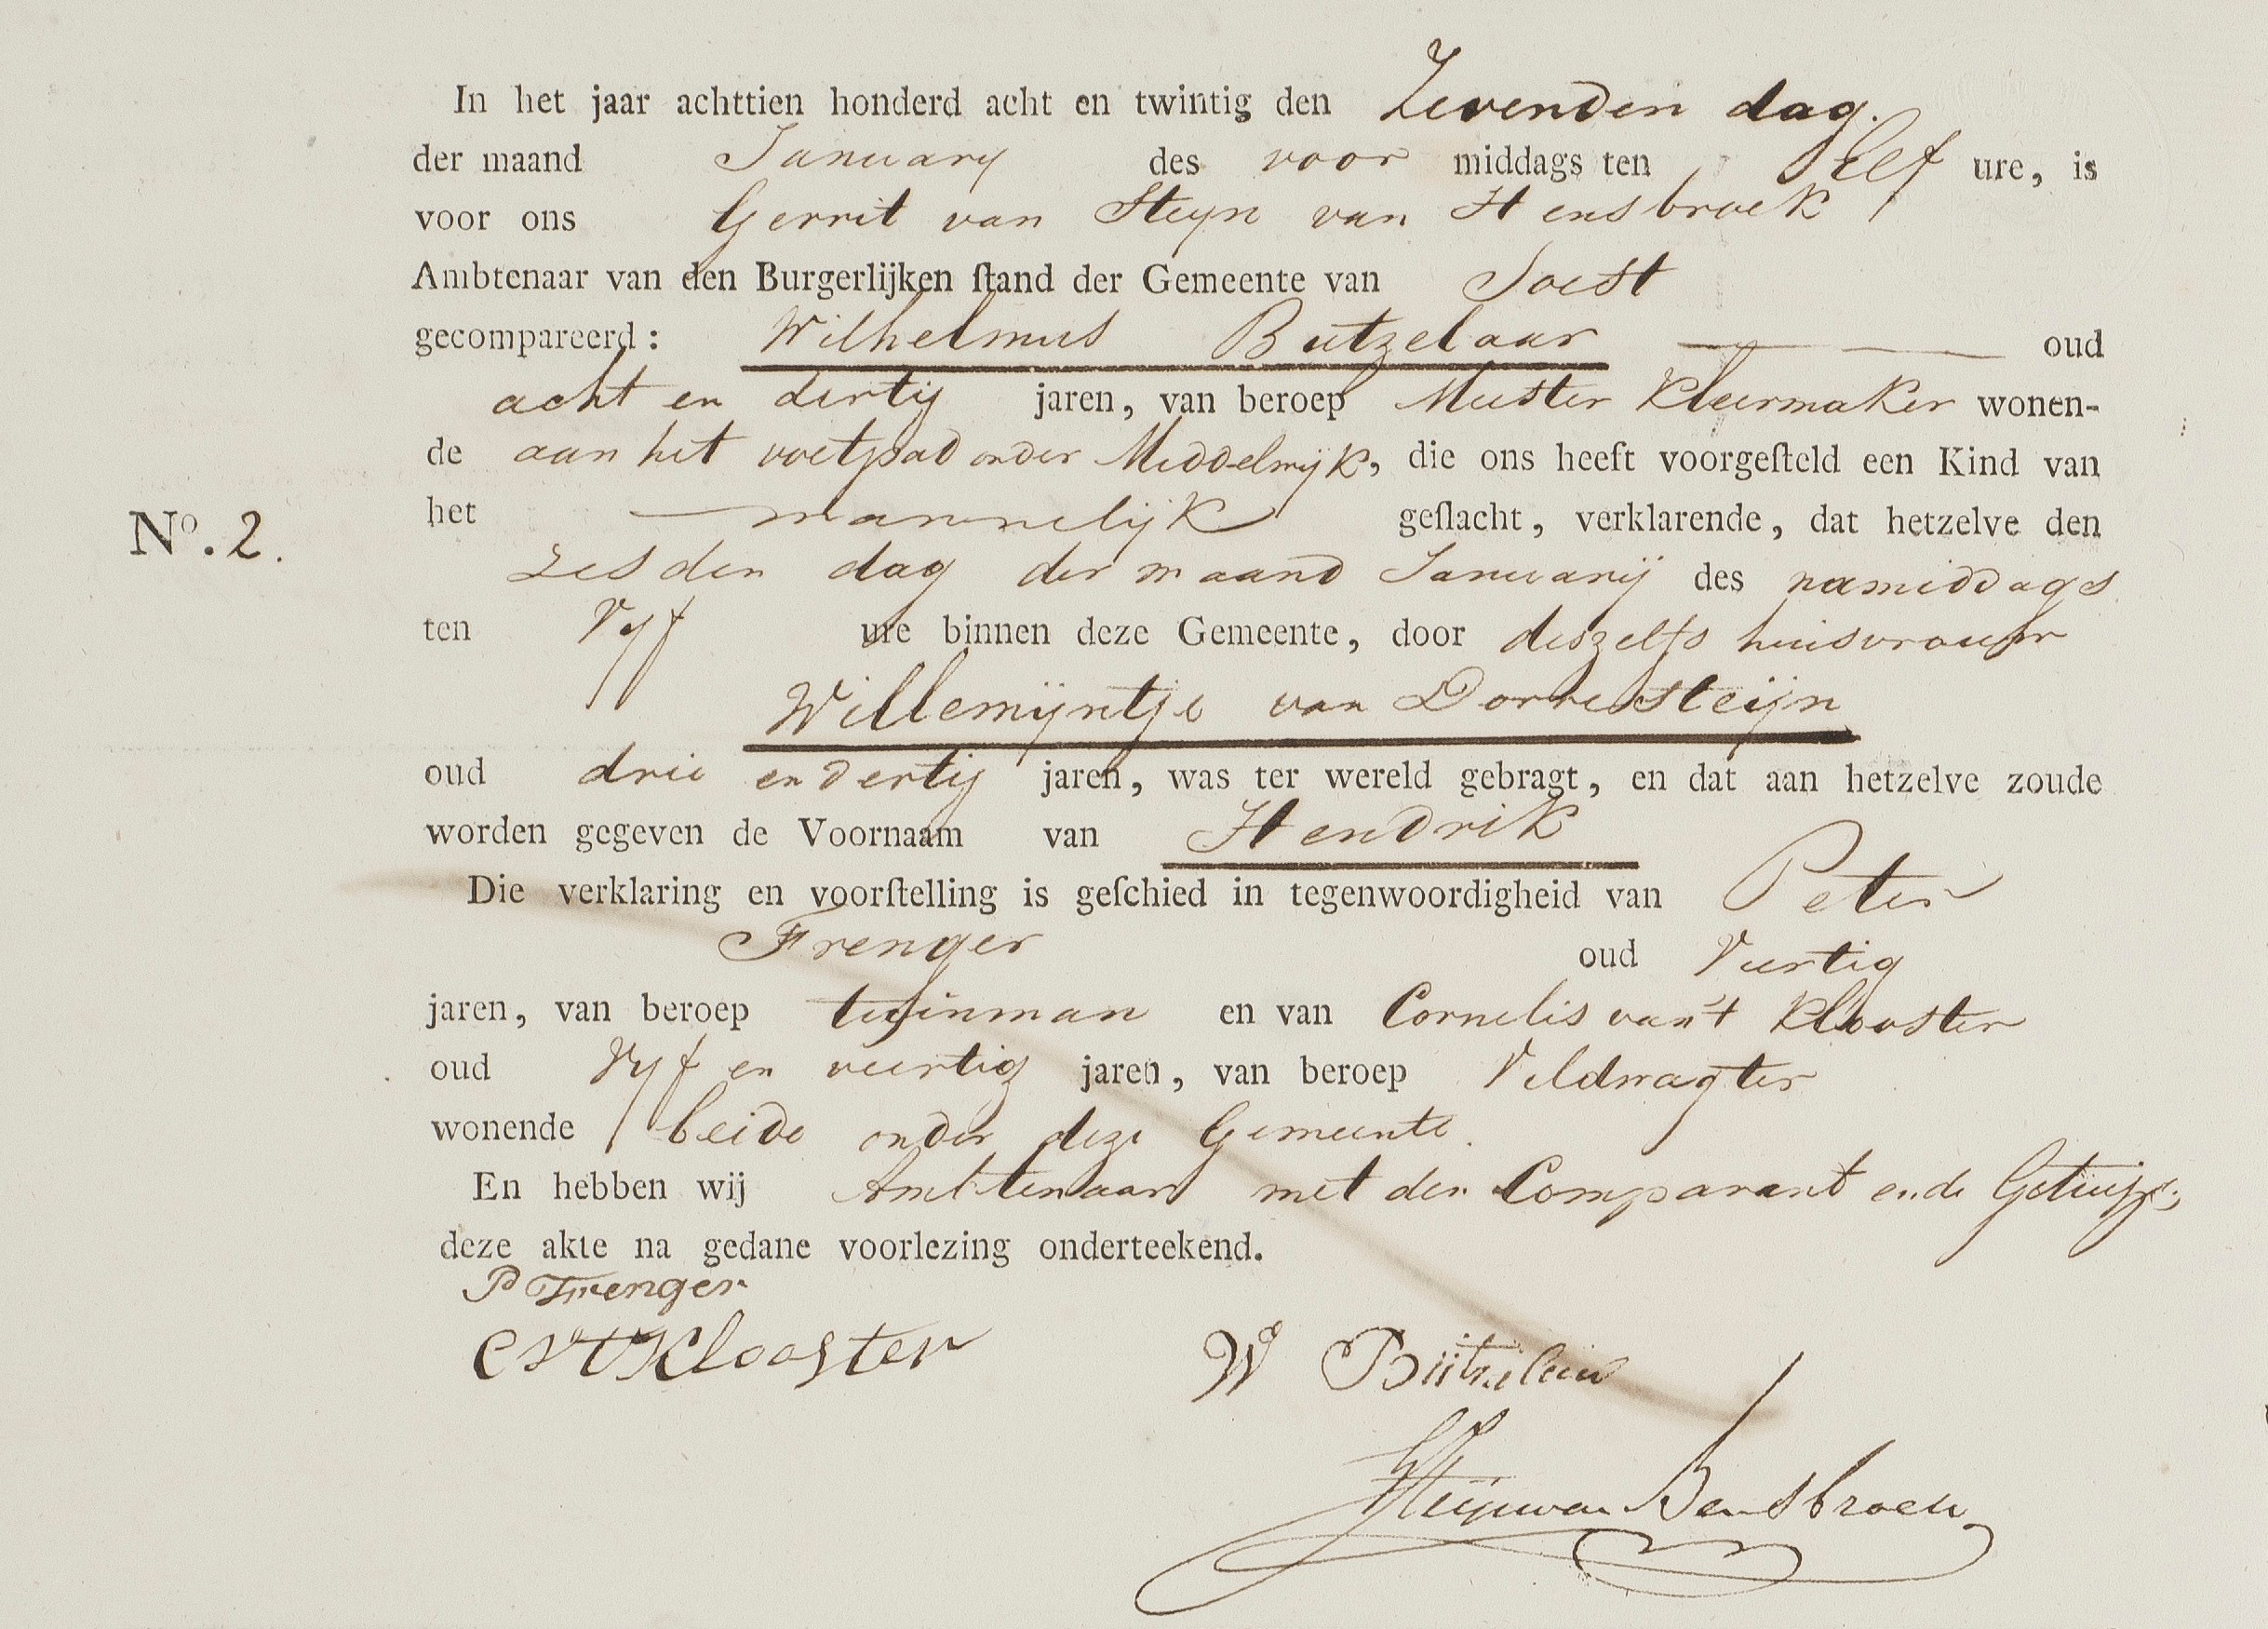 In het jaar achttien honderd acht en twintig den Zevenden dag.
der maand January des voor middags ten Elf ure, is
voor ons Gerrit van Steyn van Hensbroek
Ambtenaar van den Burgerlijken stand der Gemeente van Soest
gecompareerd: Wilhelmus Butzelaar oud
acht en dertig jaren, van beroep Meester Kleermaker wonen-
de aan het voetpad onder Middelwijk, die ons heeft voorgesteld een Kind van
het mannelijk geslacht, verklarende, dat hetzelve den
No. 2.
zesden dag der maand Januarij des namiddags
ten Vyf ure binnen deze Gemeente, door deszelfs huisvrouw
Willemijntje van Dorresteijn
oud drie en dertig jaren, was ter wereld gebragt, en dat aan hetzelve zoude
worden gegeven de Voornaam van Hendrik
Die verklaring en voorstelling is geschied in tegenwoordigheid van Peter
Frenger oud Veertig
jaren, van beroep tuinman en van Cornelis van 't Klooster
oud Vyf en veertig jaren, van beroep Veldwagter
wonende beide onder deze Gemeente.
En hebben wij Ambtenaar met den Comparant en de Getuigen
deze akte na gedane voorlezing onderteekend.
P Frenger
C V T Klooster
W Bützelaar
GSteijn van Hensbroek